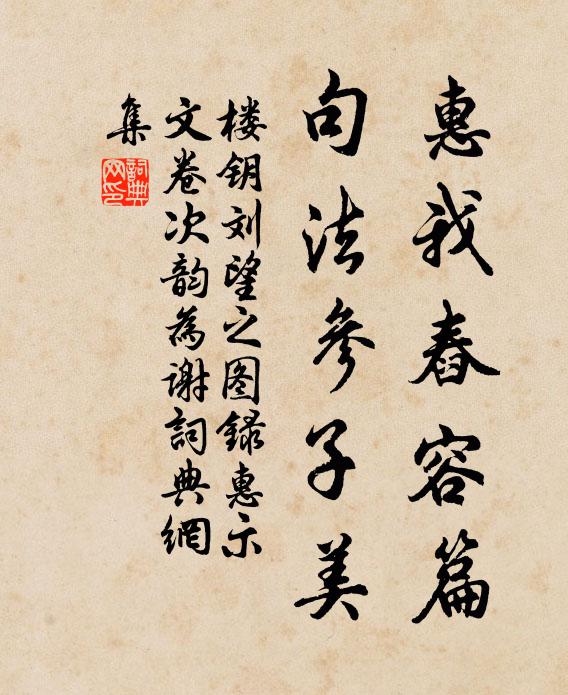 惠我舂容篇
句法參子美
楼钥刘望之图録惠示
文卷次韵為谢詞典網
集
詞典网印